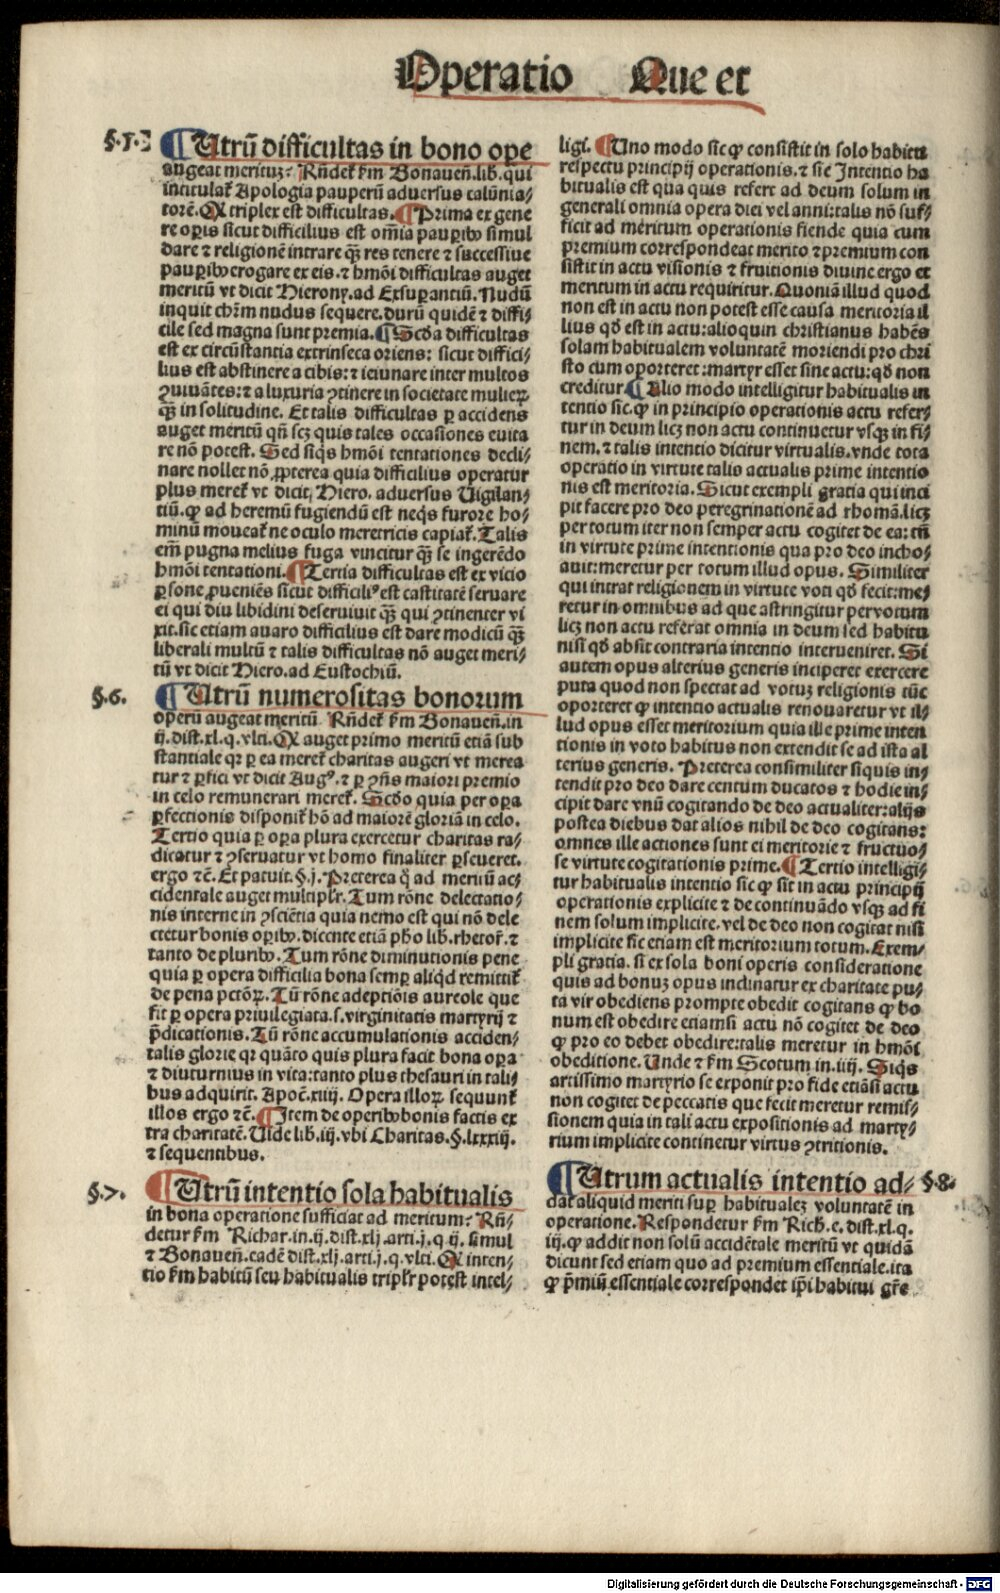 Operatio Que et
§.5.
¶ Utrū difficultas in bono ope
augeat meritum? Rñdeť ẜm Bonaueñ. lib. qui
intitulať Apologia pauperū aduersus calūnia⸗
torē. Ꝙ triplex est difficultas. ¶ Prima ex gene
re oꝑis sicut difficilius est om̄ia pauꝑibꝰ simul
dare ⁊ religionē intrare qꝫ res tenere ⁊ successiue
pauꝑibꝰ erogare ex eis. ⁊ hmōi difficultas auget
meritū vt dicit Hierony. ad Exsuꝑantiū. Nudū
inquit chr̄m nudus sequere. durū quidē ⁊ diffi⸗
cile sed magna sunt premia. ¶ Scďa difficultas
est ex circūstantia extrinseca oriens: sicut diffici⸗
lius est abstinere a cibis: ⁊ ieiunare inter multos
ꝯuiuātes: ⁊ a luxuria ꝯtinere in societate mulieꝝ
qꝫ in solitudine. Et talis difficultas ꝑ accidens
auget meritū qñ scꝫ quis tales occasiones euita
re nō potest. Sed siqͥs hmōi tentationes decli⸗
nare nollet nō ꝓpterea quia difficilius operatur
plus mereť vt dicit Hiero. aduersus Uigilan⸗
tiū. ꝙ ad heremū fugiendū est neqͥs furore ho⸗
minū moueať ne oculo meretricis capiať. Talis
em̄ pugna melius fuga vincitur qꝫ se ingerēdo
hmōi tentationi. ¶ Tertia difficultas est ex vicio
ꝑsone ꝓueniēs sicut difficiliꝰ est castitatē seruare
ei qui diu libidini deseruiuit qꝫ qui ꝯtinenter vi
xit. sic etiam auaro difficilius est dare modicū qꝫ
liberali multū ⁊ talis difficultas nō auget meri⸗
tū vt dicit Hiero. ad Eustochiū.
§.6.
¶ Utrū numerositas bonorum
operū augeat meritū Rñdeť ẜm Bonaueñ. in
ij. dist. xl. q. vlti. Ꝙ auget primo meritū etiā sub
stantiale qꝛ ꝑ ea mereť charitas augeri vt merea
tur ⁊ ꝑfici vt dicit Augꝰ. ⁊ ꝑ ꝯñs maiori premio
in celo remunerari mereť. Scďo quia per oꝑa
ꝑfectionis disponiť hō ad maiorē gloriā in celo.
Tertio quia ꝑ oꝑa plura exercetur charitas ra⸗
dicatur ⁊ ꝯseruatur vt homo finaliter ꝑseueret.
ergo ⁊c̄. Et patuit. §. j. Preterea q̄ ad meritū ac⸗
cidentale auget multiplr̄. Tum rōne delectatio⸗
nis interne in ꝯsciētia quia nemo est qui nō dele
ctetur bonis oꝑibꝰ. dicente etiā pho lib. rhetoř. ⁊
tanto de pluribꝰ. Tum rōne diminutionis pene
quia ꝑ opera difficilia bona semꝑ aliqͥd remittiť
de pena pctōꝝ. Tū rōne adeptiōis aureole que
fit ꝑ opera priuilegiata. s. virginitatis martyrij ⁊
p̄dicationis. Tū rōne accumulationis acciden⸗
talis glorie qꝛ quāto quis plura facit bona oꝑa
⁊ diuturnius in vita: tanto plus thesauri in tali⸗
bus adquirit. Apoc̄. xiiij. Opera illoꝝ sequunť
illos ergo ⁊c̄. ¶ Item de operibꝰ bonis factis ex
tra charitatē. Uide lib. iij. vbi Charitas. §. lxxxij.
⁊ sequentibus.
§.7.
¶ Utrū intentio sola habitualis
in bona operatione sufficiat ad meritum? Rñ⸗
detur ẜm Richar. in. ij. dist. xlj. arti. j. q. ij. simul
⁊ Bonaueñ. eadē dist. xlj. arti. j. q. vlti. Ꝙ inten⸗
tio ẜm habitū seu habitualis triplr̄ potest intel⸗
ligi. ¶ Uno modo sic ꝙ consistit in solo habitu
respectu principij operationis. ⁊ sic Intentio ha
bitualis est qua quis refert ad deum solum in
generali omnia opera diei vel anni: talis nō suf⸗
ficit ad meritum operationis fiende quia cum
premium correspondeat merito ⁊ premium con
sistit in actu visionis ⁊ fruitionis diuine ergo et
meritum in actu requiritur. Quoniā illud quod
non est in actu non potest esse causa meritoria il
lius qď est in actu: alioquin christianus habēs
solam habitualem voluntatē moriendi pro chri
sto cum oporteret: martyr esset sine actu: qď non
creditur. ¶ Alio modo intelligitur habitualis in
tentio sic. ꝙ in principio operationis actu refer⸗
tur in deum licꝫ non actu continuetur vsqꝫ in fi⸗
nem. ⁊ talis intentio dicitur virtualis. vnde tota
operatio in virtute talis actualis prime intentio
nis est meritoria. Sicut exempli gratia qui inci
pit facere pro deo peregrinationē ad rhomā. licꝫ
per totum iter non semper actu cogitet de ea: tn̄
in virtute prime intentionis qua pro deo incho⸗
auit: meretur per totum illud opus. Similiter
qui intrat religionem in virtute voti qď fecit: me⸗
retur in omnibus ad que astringitur per votum
licꝫ non actu referat omnia in deum sed habitu
nisi qď absit contraria intentio interueniret. Si
autem opus alterius generis inciperet exercere
puta quod non spectat ad votuꝫ religionis tūc
oporteret ꝙ intentio actualis renouaretur vt il⸗
lud opus esset meritorium quia ille prime inten
tionis in voto habitus non extendit se ad ista al
terius generis. Preterea consimiliter siquis in⸗
tendit pro deo dare centum ducatos ⁊ hodie in⸗
cipit dare vnū cogitando de deo actualiter: alijs
postea diebus dat alios nihil de deo cogitans:
omnes ille actiones sunt ei meritorie ⁊ fructuo⸗
se virtute cogitationis prime. ¶ Tertio intelligi⸗
tur habitualis intentio sic ꝙ sit in actu principij
operationis explicite ⁊ de continuādo vsqꝫ ad fi
nem solum implicite. vel de deo non cogitat nisi
implicite sic etiam est meritorium totum. Exem⸗
pli gratia. si ex sola boni operis consideratione
quis ad bonuꝫ opus inclinatur ex charitate pu⸗
ta vir obediens prompte obedit cogitans ꝙ bo
num est obedire etiamsi actu nō cogitet de deo
ꝙ pro eo debet obedire: talis meretur in hmōi
obeditione. Unde ⁊ ẜm Scotum in. iiij. Siqͥs
artissimo martyrio se exponit pro fide etiāsi actu
non cogitet de peccatis que fecit meretur remis⸗
sionem quia in tali actu expositionis ad marty⸗
rium implicite continetur virtus ꝯtritionis.
§.8.
¶ Utrum actualis intentio ad⸗
dat aliquid meriti suꝑ habitualeꝫ voluntatē in
operatione. Respondetur ẜm Rich. e. dist. xl. q.
iij. ꝙ addit non solū accidētale meritū vt quidā
dicunt sed etiam quo ad premium essentiale. ita
ꝙ p̄miū essentiale correspondet ip̄i habitui gr̄e
Digitalisierung gefördert durch die Deutsche Forschungsgemeinschaft - DFG